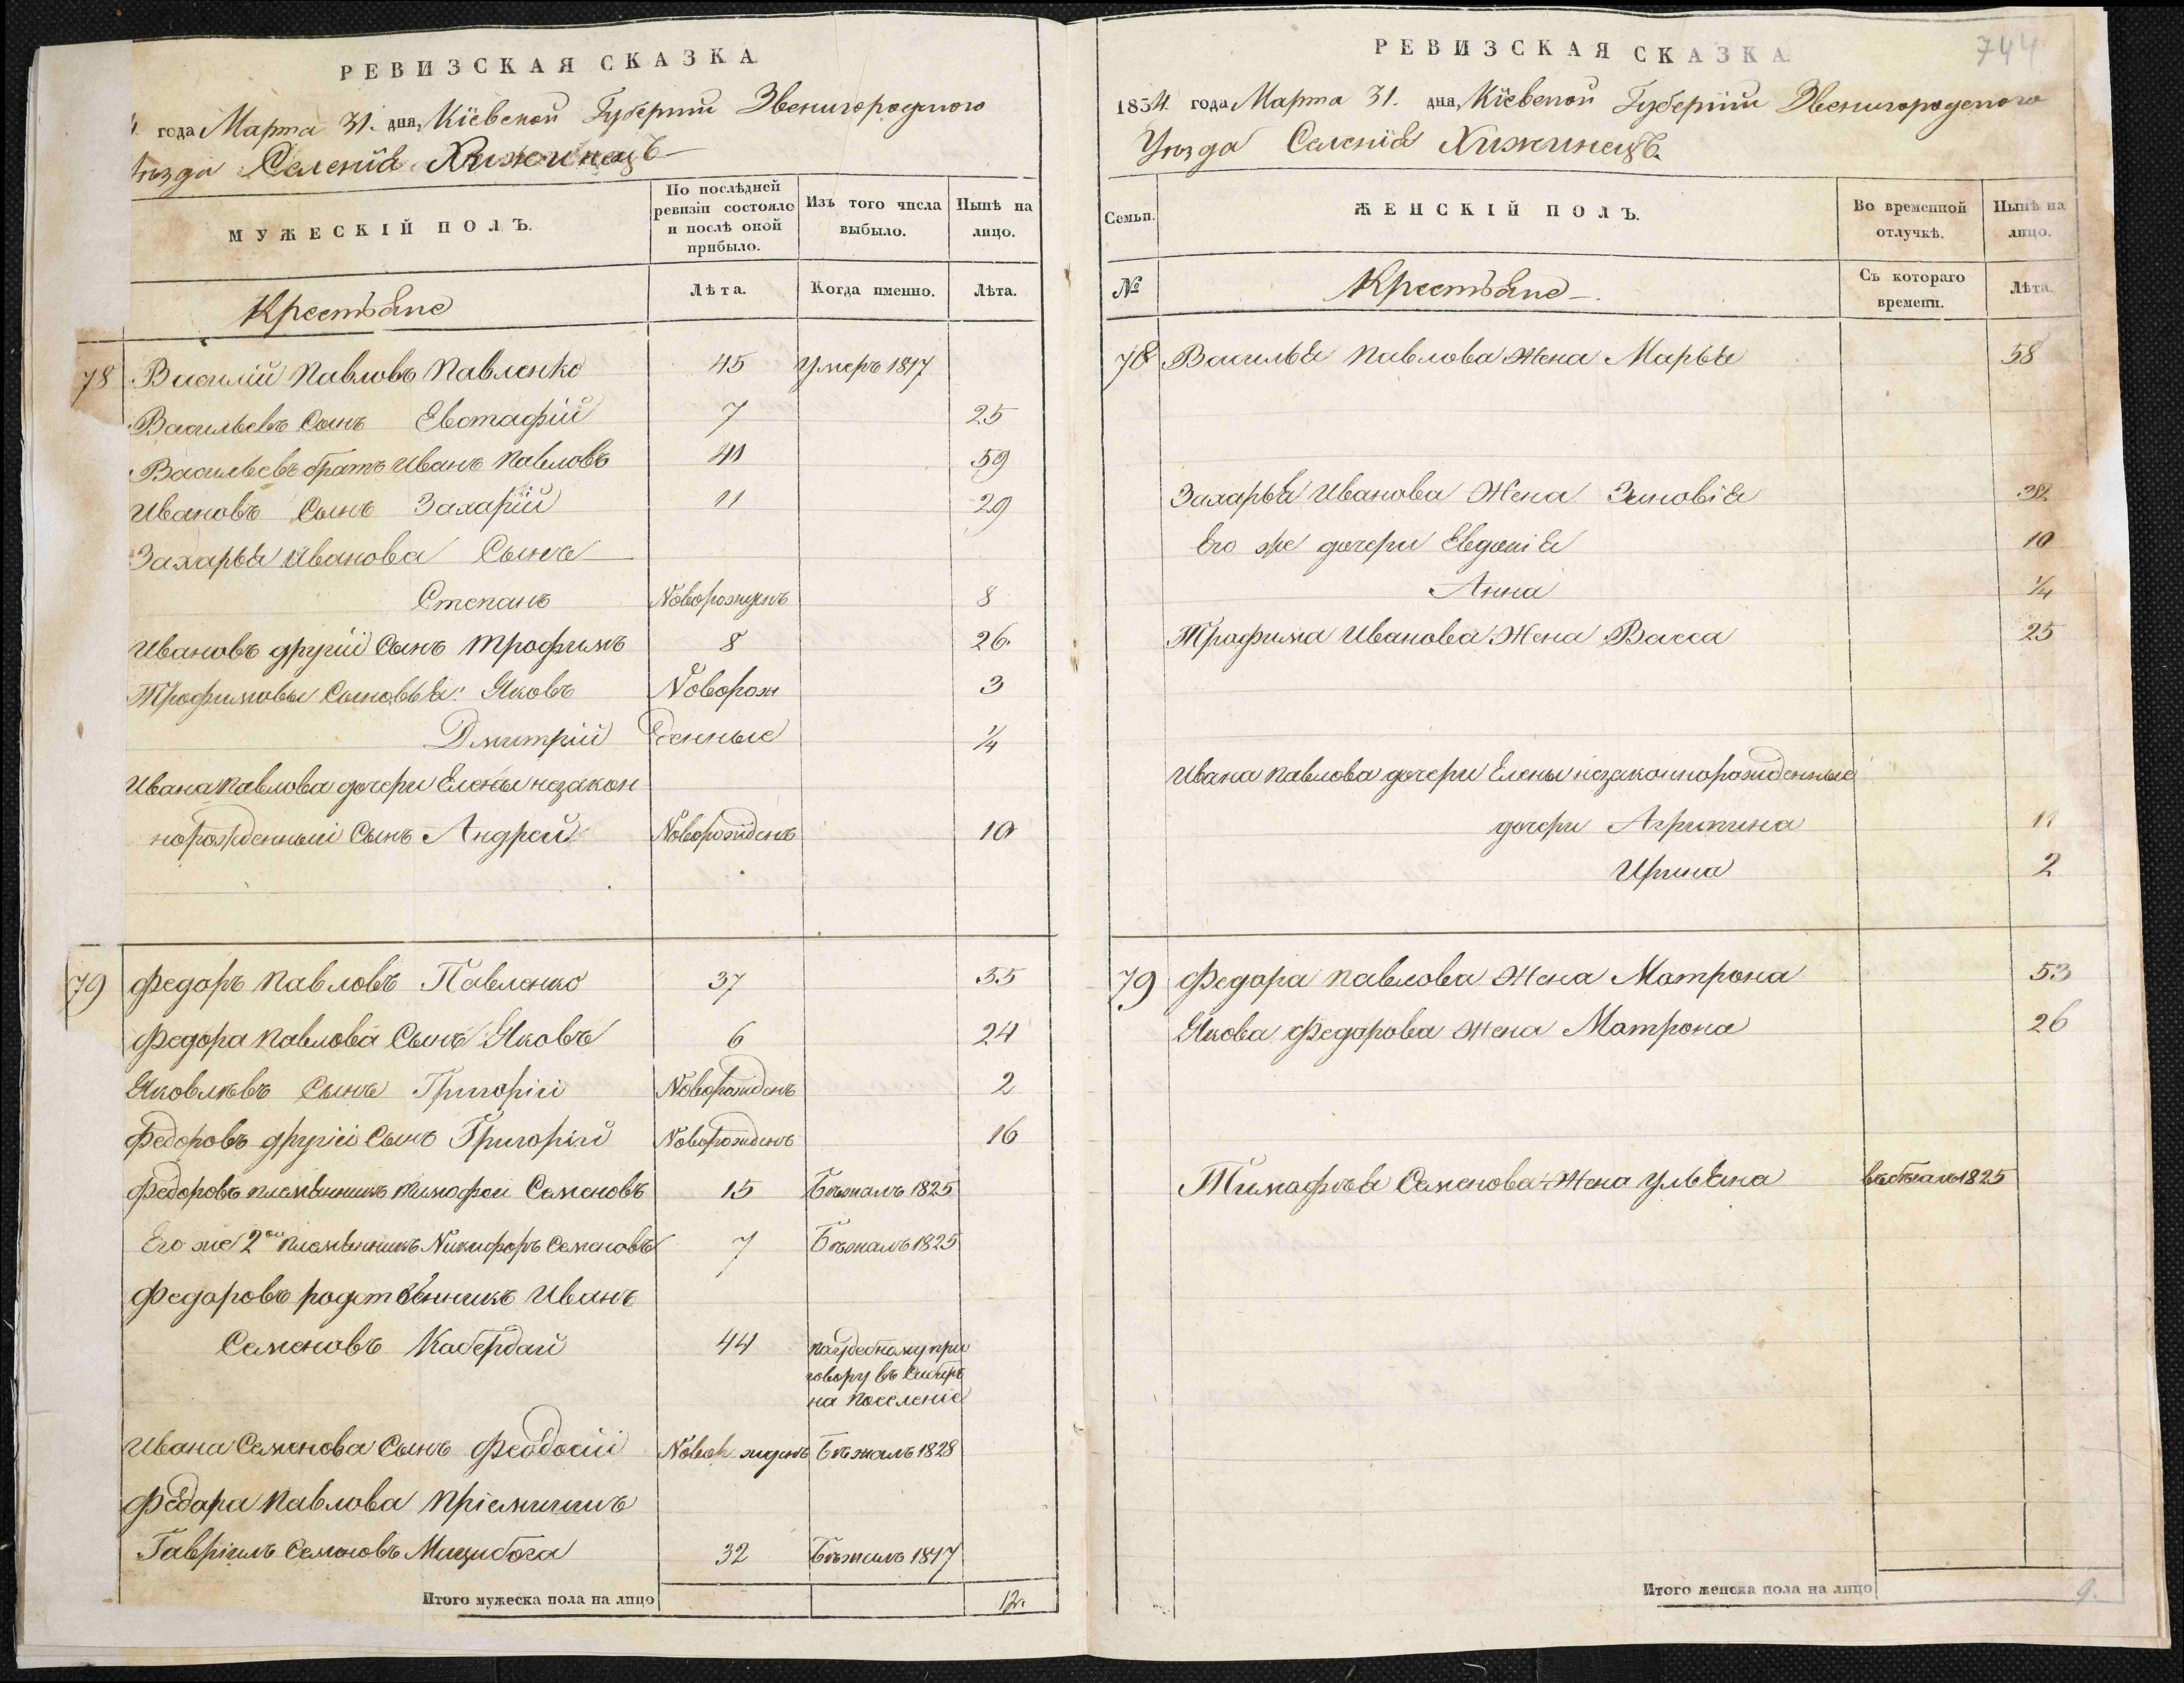 РЕВИЗСКАЯ СКАЗКА
года Марта 31. дня, Кіевской Губерніи Звенигородского
уѣзда Селенія Хижинецъ
МУЖЕСКІЙ ПОЛЪ.
По послѣдней ревизіи состояло и послѣ оной прибыло.
Изъ того числа выбыло.
Нынѣ на лицо.
Крестьяне
Лѣта.
Когда именно.
Лѣта.
78 Василій Павловъ Павленко 45 Умеръ 1817
Васильевъ Сынъ Евстафій 7 25
Васильевъ братъ Иванъ Павловъ 41 59
Ивановъ Сынъ Захарій 11 29
Захарья Иванова Сынъ
Степанъ Новорожденъ 8
Ивановъ другій Сынъ Трофимъ 8 26.
Трофимовы Сыновья: Яковъ Новорож 3
Дмитрій денные 1/4
Ивана Павлова дочери Елены незакон
норожденный Сынъ Андрей Новорожденъ 10
79 Федоръ Павловъ Павленко 37 55
Федора Павлова Сынъ Яковъ 6 24
Яковлѣвъ Сынъ Григорій Новорожденъ 2
Федоровъ другій Сынъ Григорій Новорожденъ 16
Федоровъ племянникъ Тимофей Семеновъ 15 Бѣжалъ 1825
Его же 2ой племянникъ Никифоръ Семеновъ 7 Бѣжалъ 1825
Федоровъ родственникъ Иванъ
Семеновъ Кабердай 44 по судебному при
говору въ Сибирь
на поселеніе
Ивана Семенова Сынъ Феодосій Новорожденъ Бѣжалъ 1828
Федора Павлова пріемышъ
Гавріилъ Семеновъ 32 Бѣжалъ 1817
Итого мужеска пола на лицо 12.
744
РЕВИЗСКАЯ СКАЗКА
1834 года Марта 31. дня, Кіевской Губерніи Звенигородского
Уѣзда Селенія Хижинецъ.
Семьи.
ЖЕНСКІЙ ПОЛЪ.
Во временной отлучкѣ.
Нынѣ на лицо.
№
Крестьяне
Съ котораго времени.
Лѣта.
78 Василья Павлова Жена Марья 58
Захарья Иванова Жена Зиновія 32
Его же дочери Евдокія 10
Анна 1/4
Трафима Иванова Жена Васса 25
Ивана Павлова дочери Елены незаконнорожденные
дочери Агрипина 11
Ирина 2
79 Федора Павлова Жена Матрона 53
Якова Федорова Жена Матрона 26
Тимофѣя Семенова Жена Ульяна 1825
Итого женска пола на лицо 9.